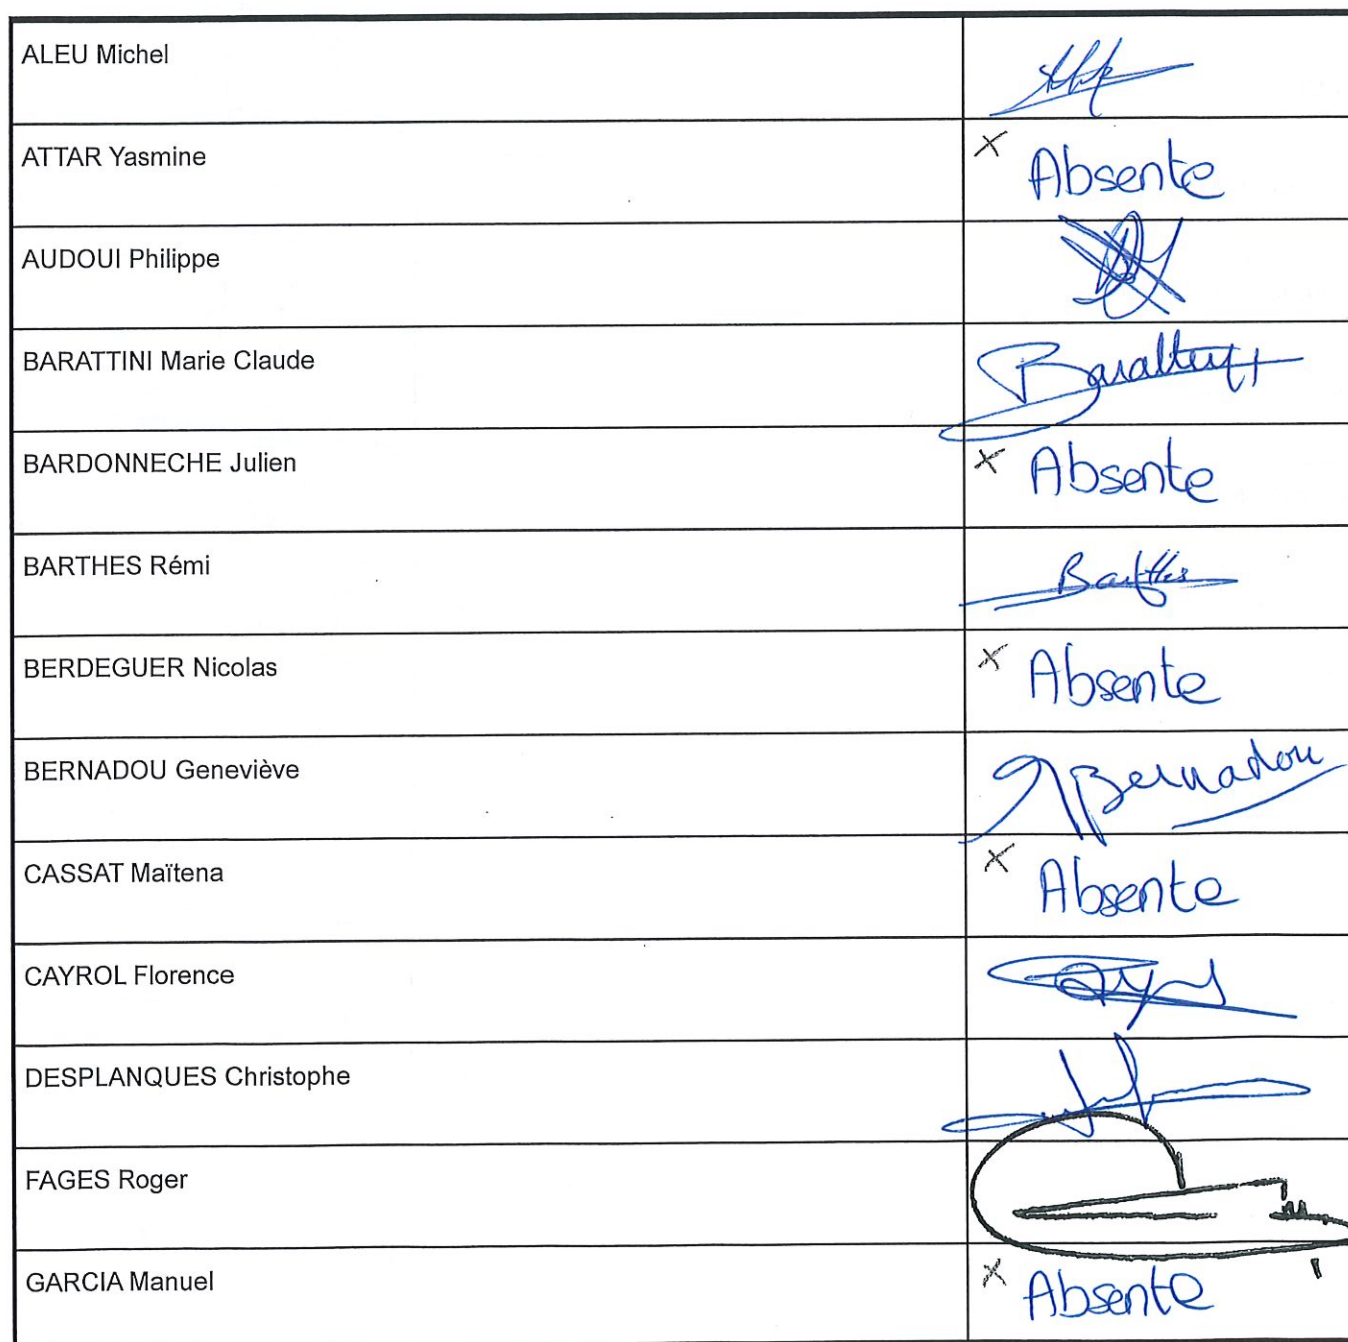 ALEU Michel
ATTAR Yasmine x Absente
AUDOUI Philippe
BARATTINI Marie Claude
BARDONNECHE Julien x Absente
BARTHES Rémi Barthes
BERDEGUER Nicolas x Absente
BERNADOU Geneviève Bernadou
CASSAT Maïtena x Absente
CAYROL Florence
DESPLANQUES Christophe
FAGES Roger
GARCIA Manuel x Absente